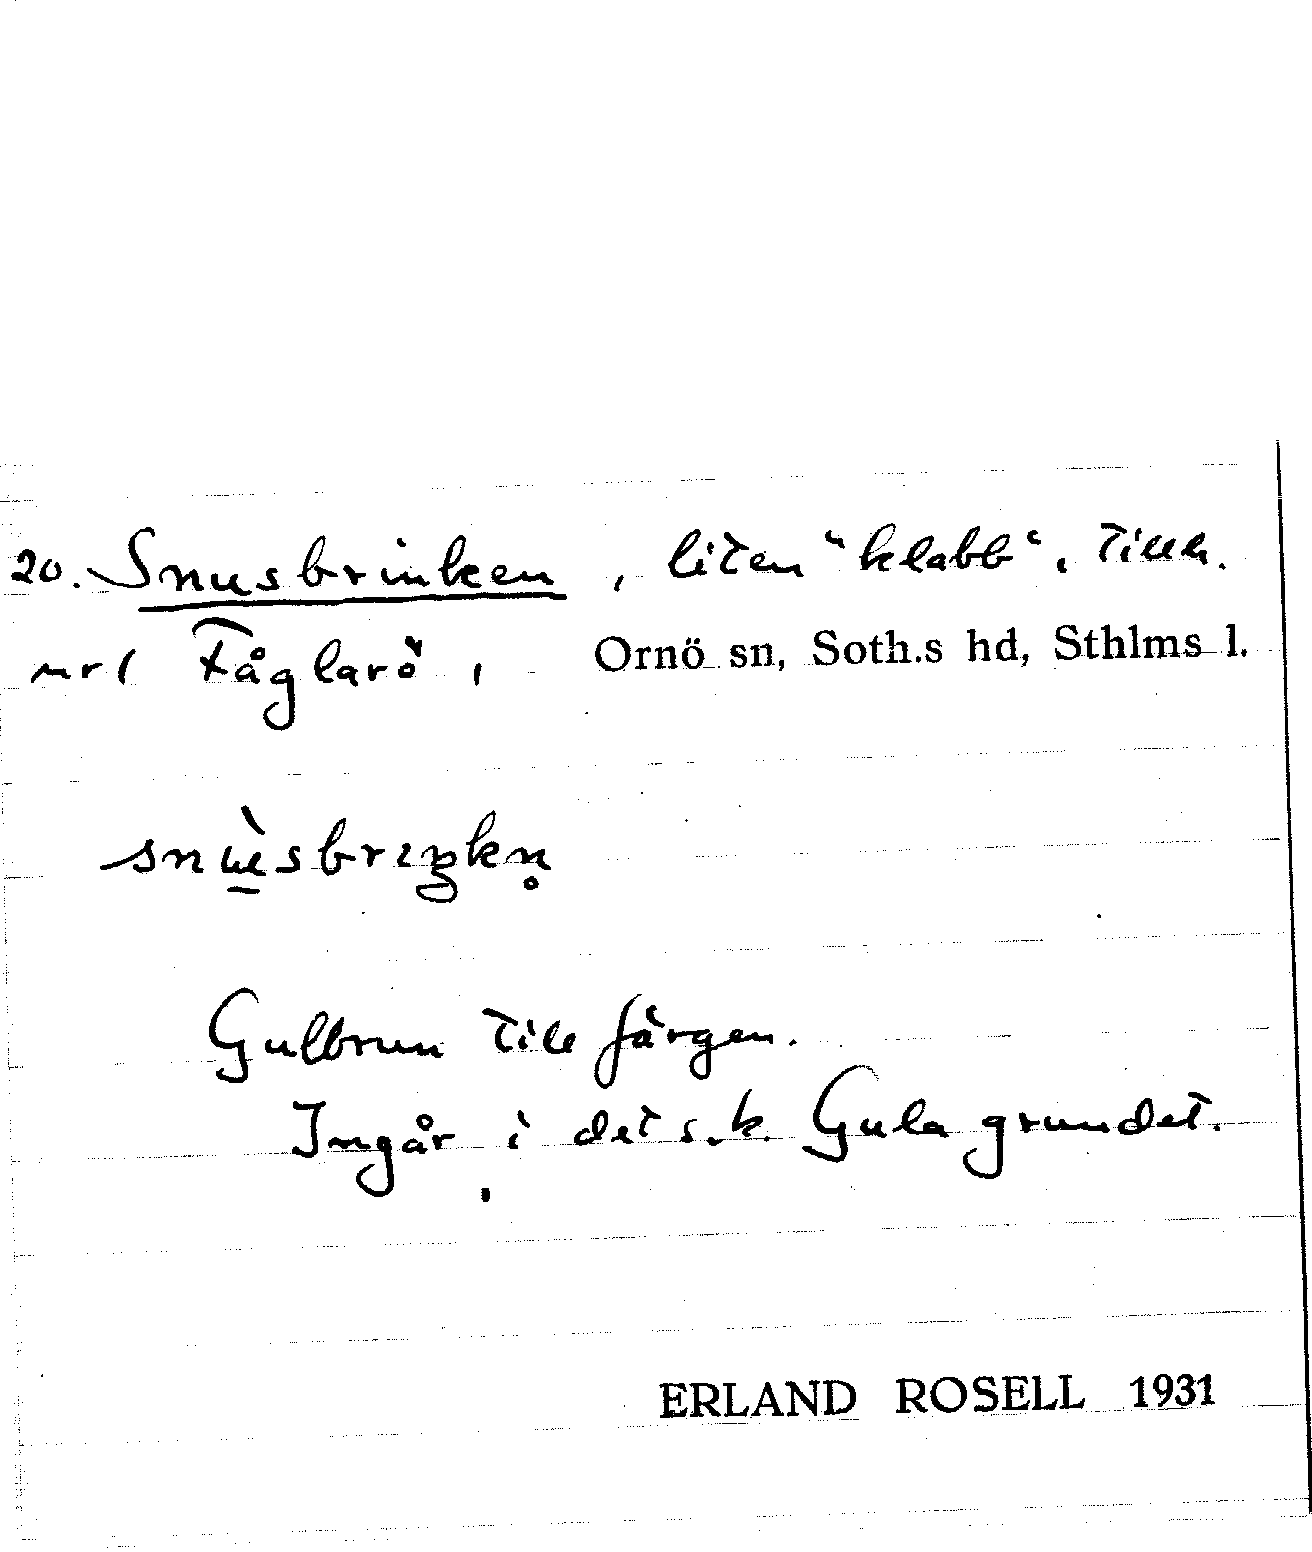 20. Snusbrinken, liten "klabb", tillh.
nrl Fåglarö, Ornö sn, Soth.s hd, Sthlms l.
Gulbrun till färgen.
Ingår i det s.k. Gula grundet.
ERLAND ROSELL 1931